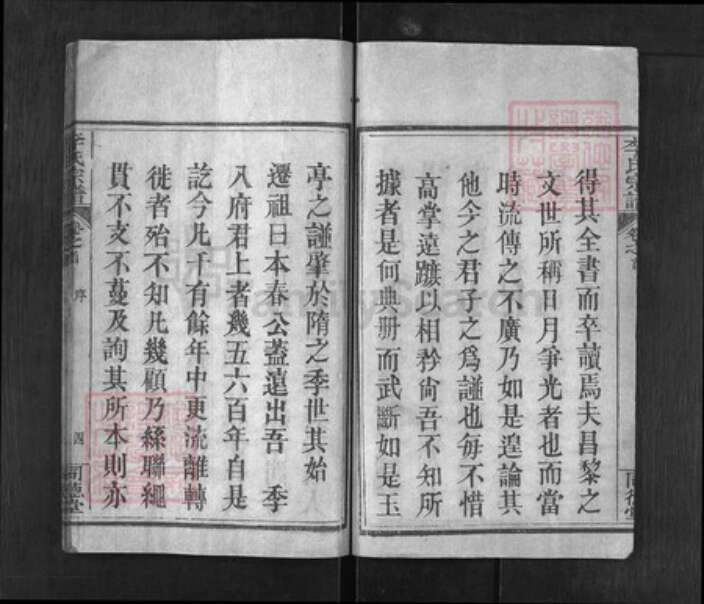 李氏宗譜
卷之首
得其全書而卒讀焉夫昌黎之
文世所稱日月爭光者也而當
時流傳之不廣乃如是遑論其
他今之君子之為謹也每不惜
高掌遠蹠以相矜尚吾不知所
據者是何典册而武斷如是玉
亭之謹肇於隋之季世其始
遷祖曰本春公蓋遠出吾 季
入府君上者幾五六百年自是
訖今凡千有餘年中更流離轉
徙者殆不知凡幾顧乃絲聯繩
貫不支不蔓及詢其所本則亦
李氏宗譜
卷之首
序
四
同德堂
FamilySearch